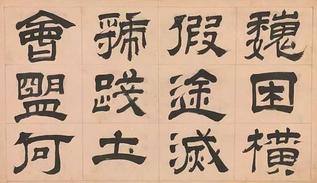 魏困橫
假途滅
虢踐土
會盟何